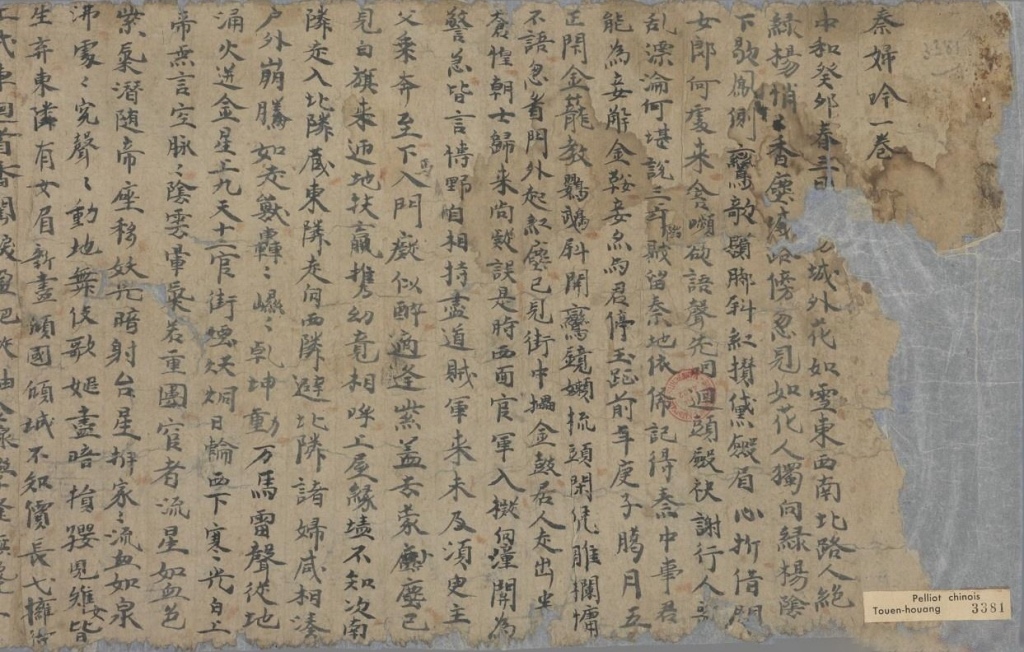 秦婦吟一卷
中和癸卯春三月 城外花如雪東西南北路人絶
綠楊悄〻香塵滅路傍忽見如花人獨向綠楊陰
下歇鳳側鸞欹鬢腳斜紅攢黛斂眉心折借問
女郎何處來含嚬欲語聲先咽迴頭斂袂謝行人喪
乱漂淪何堪說三年陷賊留秦地依俙記得秦中事君
能為妾解金鞍妾亦為君停玉趾前年庚子臘月五
正閇金籠教鸚鵡斜開鸞鏡嬾梳頭閑凭雕欄慵
不語忽看門外起紅塵已見街中擂金鼓居人走出半
蒼惶朝士歸來尚疑誤是時西面官軍入擬向潼開為
警急皆言博野自相持盡道賊軍來未及須臾主
父乘奔至下馬入門癡似醉適逢紫盖去蒙塵已
見白旗來迊地扶羸攜幼竟相呼上屋緣墻不知次南
隣走入北隣藏東隣走向西隣避北隣諸婦咸相湊
户外崩騰如走獸轟〻崐〻乹坤動万馬雷聲從地
涌火迸金星上九天十二官街烟烘烔日輪西下寒光白上
帝無言空脉〻陰雲暈氣若重圍宦者流星如血色
紫氣潛随帝座移妖光暗射台星拆家〻流血如泉
沸處〻冤聲〻動地舞伎歌姬盡暗捐嬰兒稚女皆
生弃東隣有女眉新畫傾國傾城不知價長戈擁得
上戎車迴首香閨淚盈把
Pelliot chinois
Touen-houang 3381